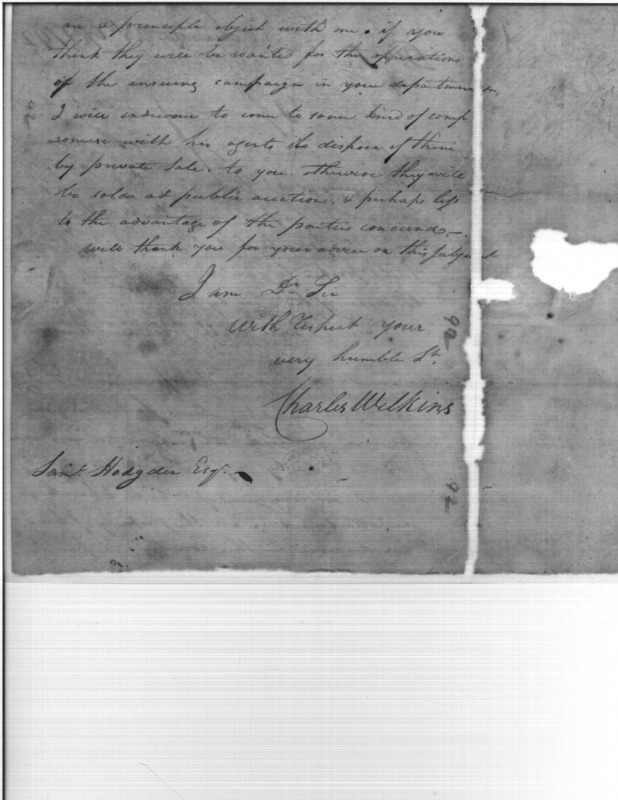 are a principle object with me. if you
think they will be wanted for the opperations
of the ensuing campaign in your department
I will indeavour to come to some kind of comp
romise with his agents to dispose of them
by private Sale to you. otherwise they will
be sold at public auction, & perhaps less
to the advantage of the parties concernd—
will thank you for your advice on this subject
I am Dr Sir
with respect your
very humble St.
Charles Wilkins
Saml. Hodgden Esqr.
92
92